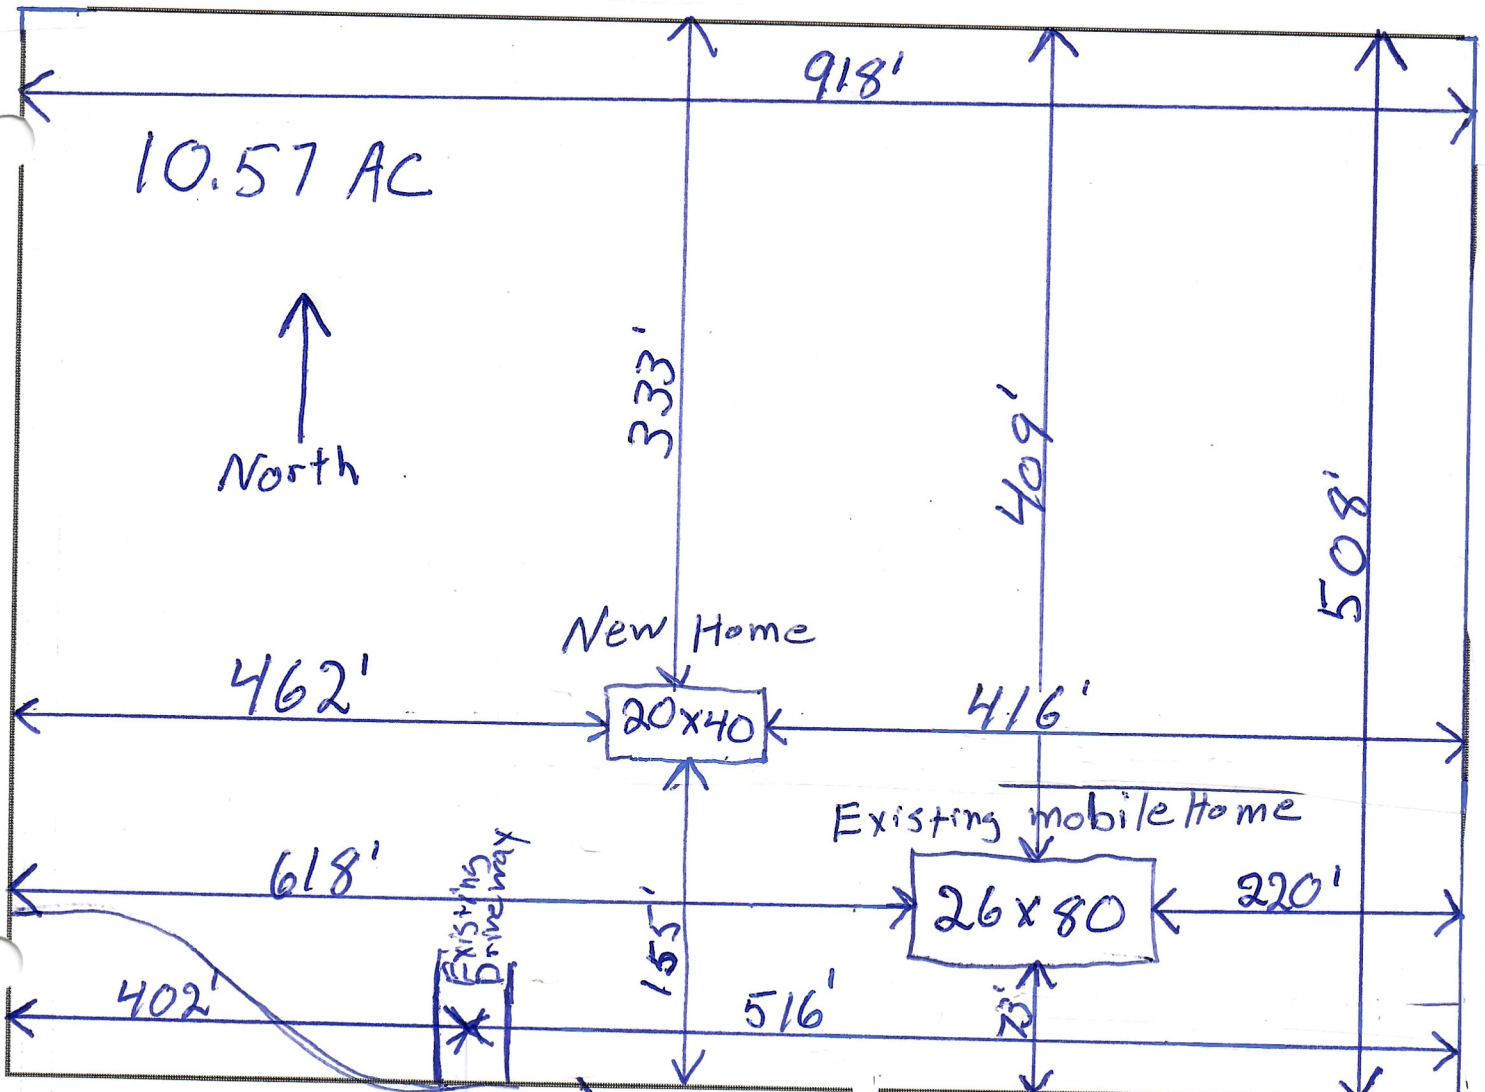 918'
10.57 AC
North
333'
409'
508'
New Home
462'
20x40
416'
Existing mobile Home
618'
Existing
Driveway
155'
26x80
220'
402'
516'
73'